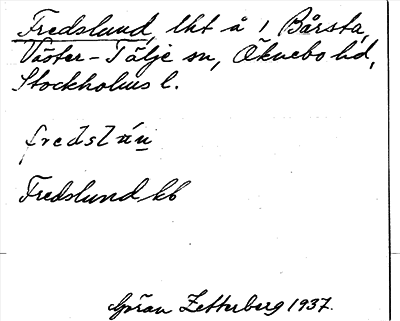 Fredslund, lht å 1 Bårsta,
Väster-Tälje sn, Öknebo hd,
Stockholms l.
fredslún
Fredslund kb
Göran Zetterberg 1937.